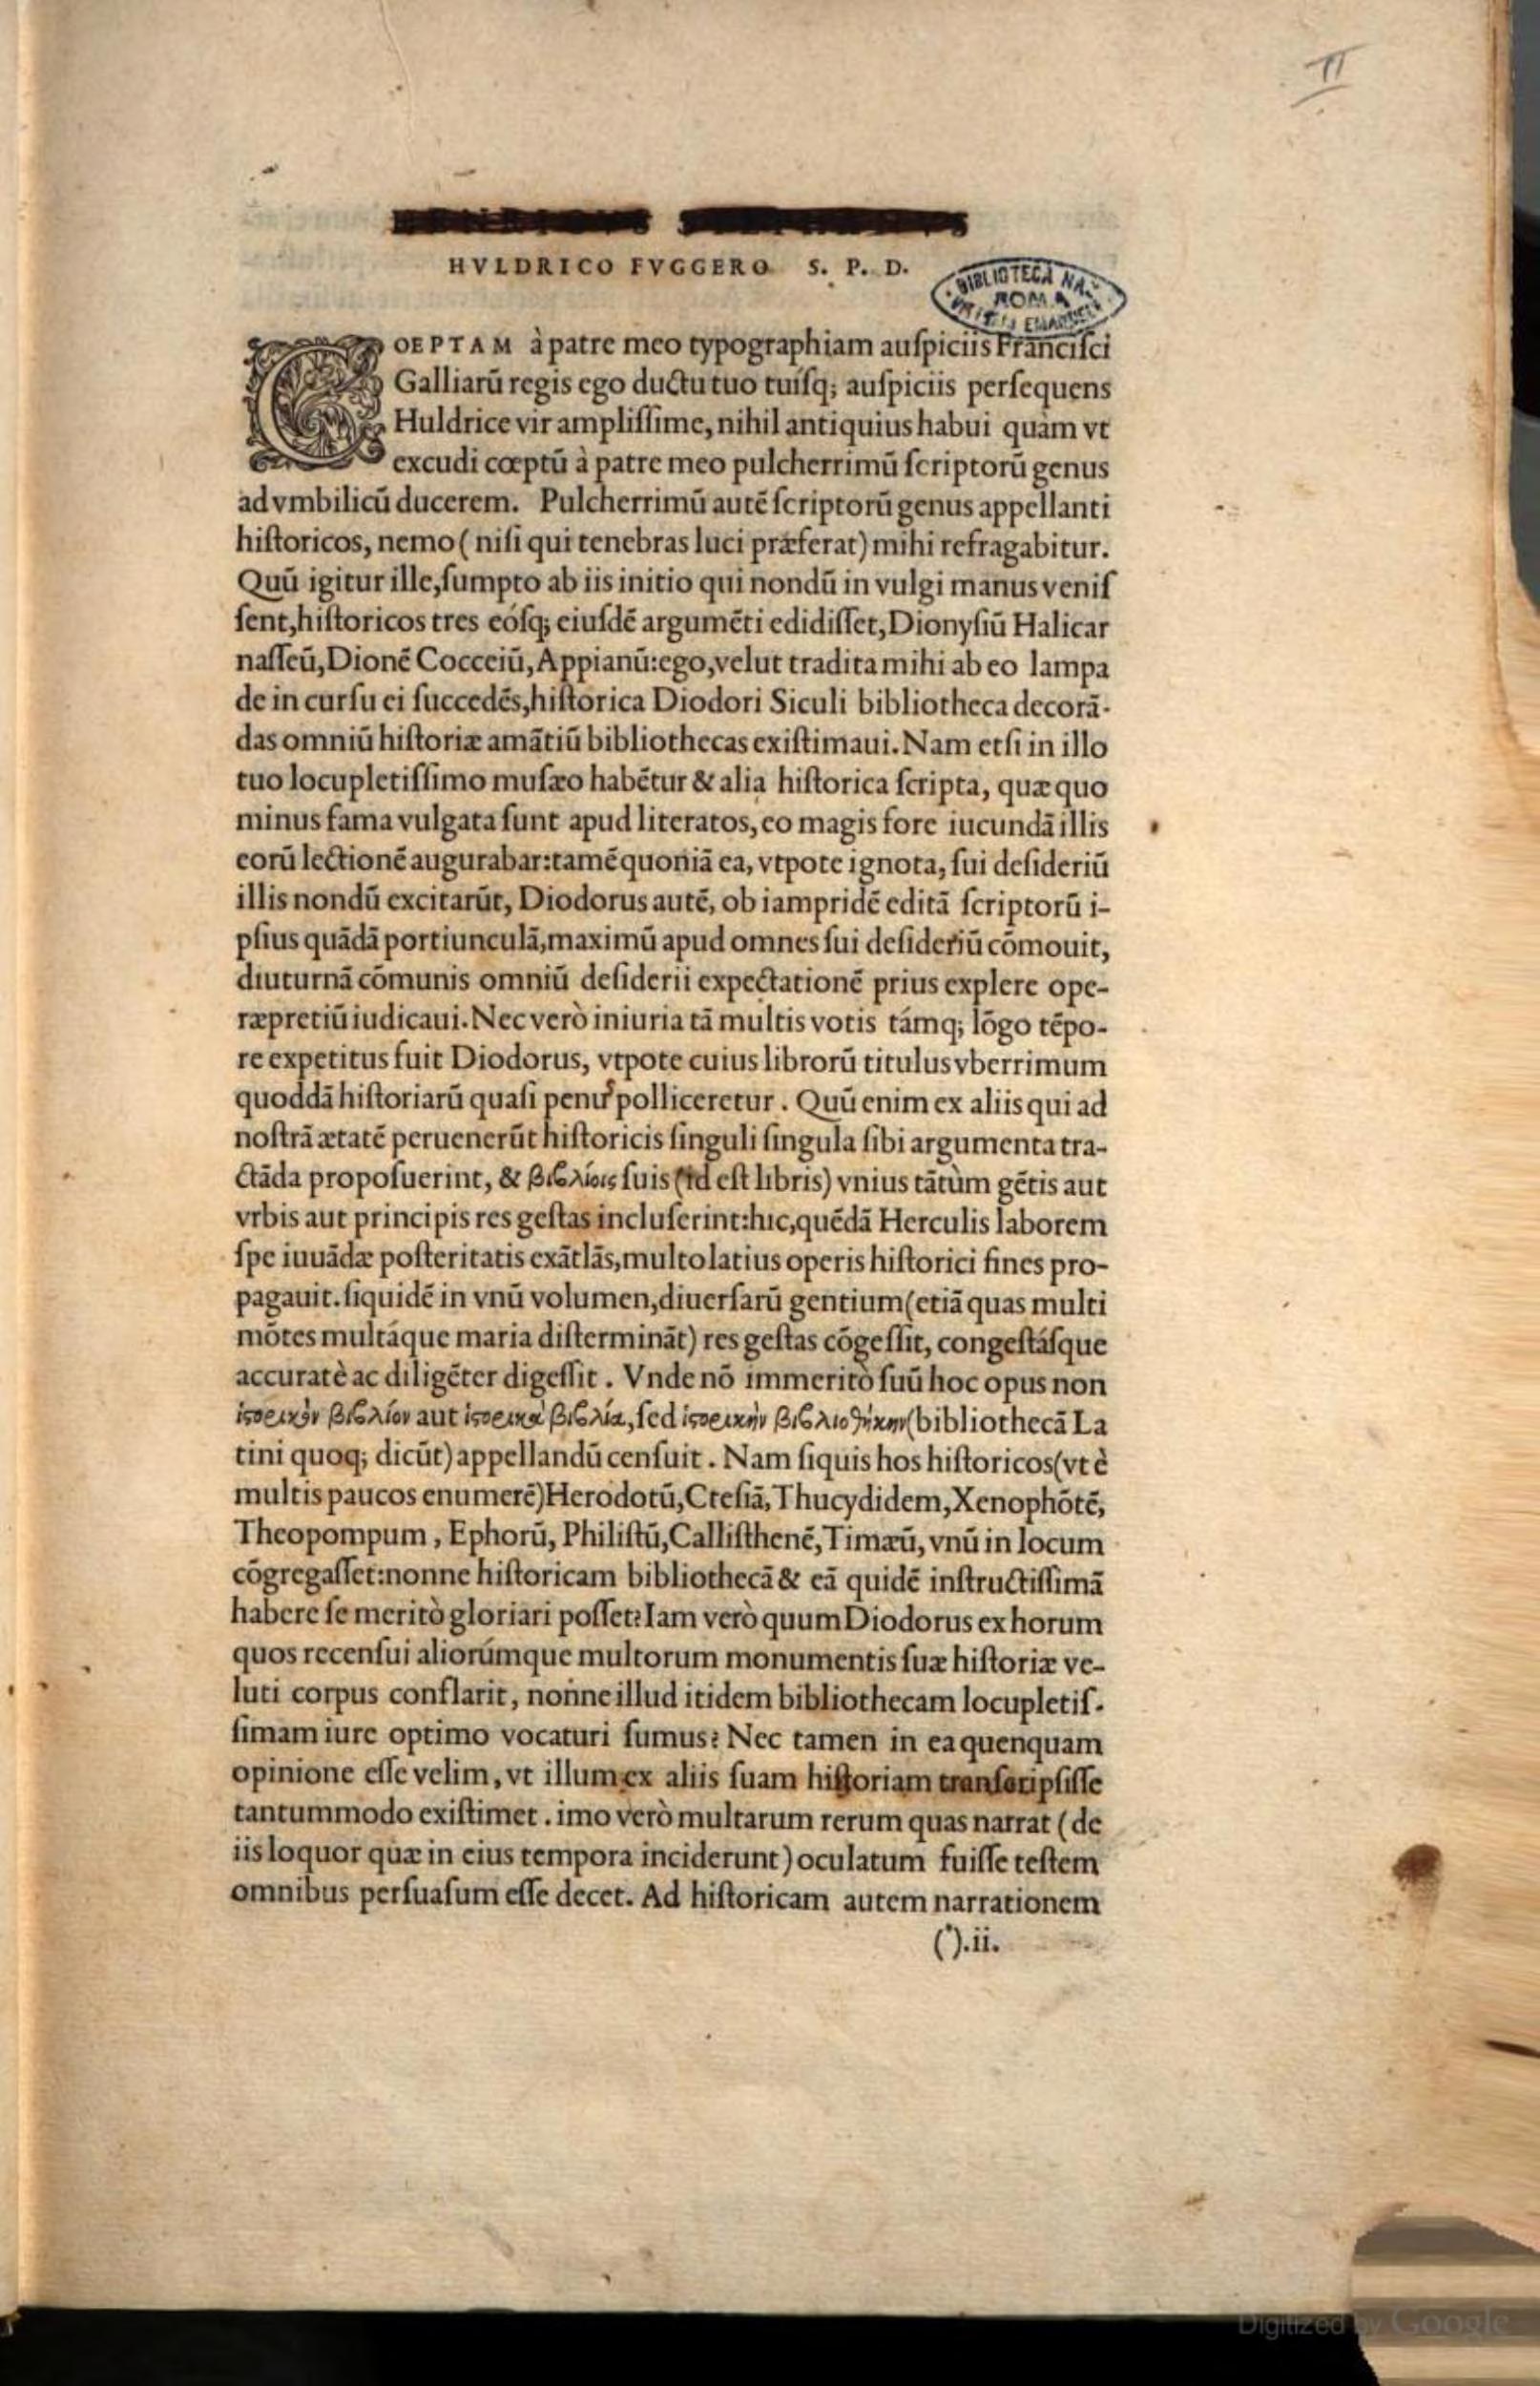 II
HVLDRICO FVGGERO S. P. D.
BIBLIOTECA NAZ
ROMA
VITT. EMANUELE
COEPTAM à patre meo typographiam auſpiciis Franciſci
Galliarū regis ego ductu tuo tuíſq; auſpiciis perſequens
Huldrice vir ampliſſime, nihil antiquius habui quàm vt
excudi cœptū à patre meo pulcherrimū ſcriptorū genus
ad vmbilicū ducerem. Pulcherrimū autē ſcriptorū genus appellanti
hiſtoricos, nemo ( niſi qui tenebras luci præferat) mihi refragabitur.
Quū igitur ille, ſumpto ab iis initio qui nondū in vulgi manus veniſ
ſent, hiſtoricos tres eóſq; eiuſdē argumēti edidiſſet, Dionyſiū Halicar
naſſeū, Dionē Cocceiū, Appianū: ego, velut tradita mihi ab eo lampa
de in curſu ei ſuccedēs, hiſtorica Diodori Siculi bibliotheca decorā-
das omniū hiſtoriæ amātiū bibliothecas exiſtimaui. Nam etſi in illo
tuo locupletiſſimo muſæo habētur & alia hiſtorica ſcripta, quæ quo
minus fama vulgata ſunt apud literatos, eo magis fore iucundā illis
eorū lectionē augurabar: tamē quoniā ea, vtpote ignota, ſui deſideriū
illis nondū excitarūt, Diodorus autē, ob iampridē editā ſcriptorū i-
pſius quādā portiunculā, maximū apud omnes ſui deſideriū cōmouit,
diuturnā cōmunis omniū deſiderii expectationē prius explere ope-
ræpretiū iudicaui. Nec verò iniuria tā multis votis támq; lōgo tēpo-
re expetitus fuit Diodorus, vtpote cuius librorū titulus vberrimum
quoddā hiſtoriarū quaſi penu polliceretur. Quū enim ex aliis qui ad
noſtrā ætatē peruenerūt hiſtoricis ſinguli ſingula ſibi argumenta tra-
ctāda propoſuerint, & βιβλίοις ſuis (id eſt libris) vnius tātùm gētis aut
vrbis aut principis res geſtas incluſerint: hic, quēdā Herculis laborem
ſpe iuuādæ poſteritatis exātlās, multo latius operis hiſtorici fines pro-
pagauit. ſiquidē in vnū volumen, diuerſarū gentium (etiā quas multi
mōtes multáque maria diſtermināt) res geſtas cōgeſſit, congeſtáſque
accuratè ac diligēter digeſſit. Vnde nō immeritò ſuū hoc opus non
ἱστορικὸν βιβλίον aut ἱστορικὰ βιβλία, ſed ἱστορικὴν βιβλιοθήκην (bibliothecā La
tini quoq; dicūt) appellandū cenſuit. Nam ſiquis hos hiſtoricos (vt è
multis paucos enumerē) Herodotū, Cteſiā, Thucydidem, Xenophōtē,
Theopompum, Ephorū, Philiſtū, Calliſthenē, Timæū, vnū in locum
cōgregaſſet: nonne hiſtoricam bibliothecā & eā quidē inſtructiſſimā
habere ſe meritò gloriari poſſet? Iam verò quum Diodorus ex horum
quos recenſui aliorúmque multorum monumentis ſuæ hiſtoriæ ve-
luti corpus conflarit, nonne illud itidem bibliothecam locupletiſ-
ſimam iure optimo vocaturi ſumus? Nec tamen in ea quenquam
opinione eſſe velim, vt illum ex aliis ſuam hiſtoriam tranſcripſiſſe
tantummodo exiſtimet. imo verò multarum rerum quas narrat ( de
iis loquor quæ in eius tempora inciderunt) oculatum fuiſſe teſtem
omnibus perſuaſum eſſe decet. Ad hiſtoricam autem narrationem
(*).ii.
Digitized by Google